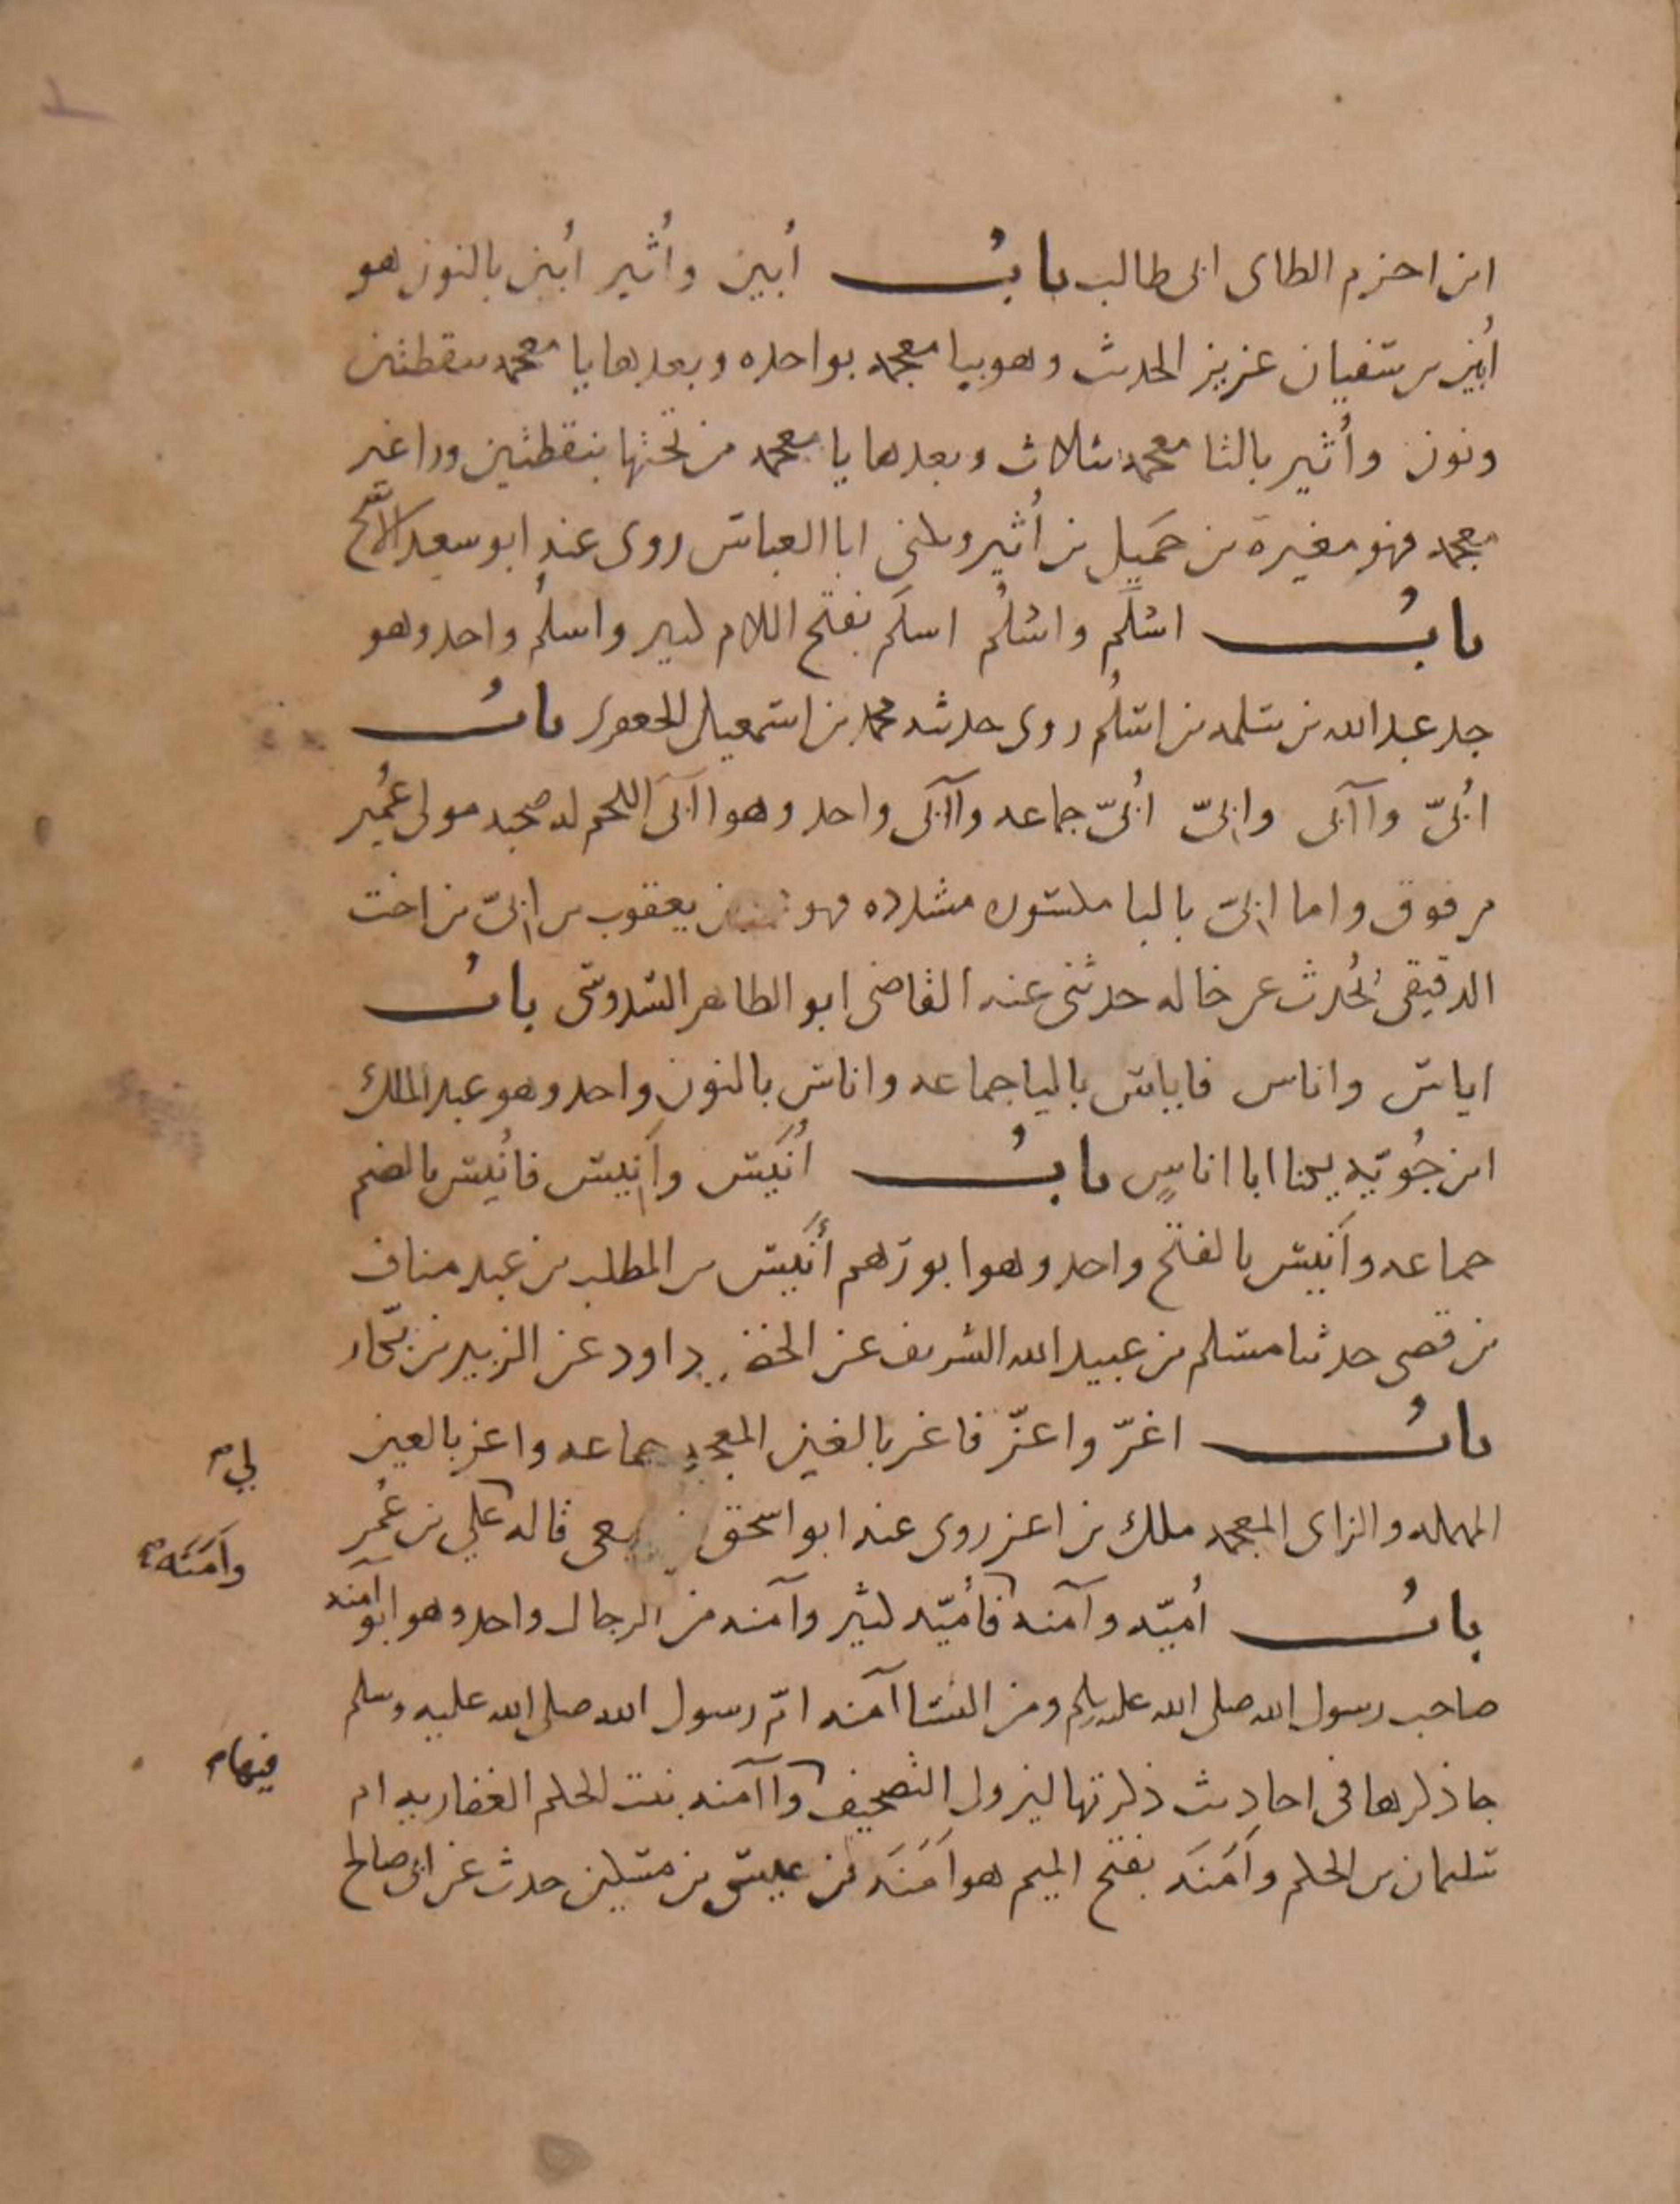 ابن احزم الطاى ابى طالب بابُ أُبين وأُثير أُبين بالنون هو
أُبين بن سفيان عزيز الحديث وهو ببا معجمه بواحده وبعدها يا معجمه بنقطتين
ونون وأُثير بالثا معجمه بثلاث وبعدها يا معجمه من تحتها بنقطتين ورا غير
معجمه فهو مغيرة بن حَميل بن أُثير وكنى ابا العباس روى عنه ابو سعيد الاشج
بابُ اسلَم واسلُم اسلَم بفتح اللام كبير واسلُم واحد وهو
جد عبد الله بن سلمه بن اسلُم روى حديثه محمد بن اسمعيل الجعفرى بابُ
اُبىّ وآابى وابىّ اُبىّ جماعه وآابى واحد وهو اآبى اللحم له صحبه مولى عُمير
من فوق واما ابىّ باليا مكسوره مشدده فهو يعقوب بن ابىّ بن اخت
الدقيقى يُحدث عن خاله حدثنى عنه القاضى ابو الطاهر السدوسى بابُ
اياس واناس فاياس باليا جماعه واناس بالنون واحد وهو عبد الملك
ابن جُويّه يكنا ابا اناسٍ بابُ اُنَيس وأَنيس فاُنيس بالضم
جماعه وأَنيس بالفتح واحد وهو ابو رهم أَنيس بن المطلب بن عبد مناف
بن قصى حدثنا مسلم بن عبيد الله الشريف عن الخضر داود عن الزبير بن بكّار
بابُ اغرّ واعزّ فاغر بالغين المعجمه جماعه واعز بالعين
المهمله والزاى المعجمه ملك بن اعز روى عنه ابو اسحق قاله على بن عُمر
لى م
بابُ أُميّه وآمنه فأُميّه كثير وآمنه من الرجال واحد وهو ابو آمنه
وأَمَنَه م
صاحب رسول الله صلى الله عليه وسلم ومن النسا آمنه امّ رسول الله صلى الله عليه وسلم
جا ذكرها فى احاديث ذكرتها ليزول التصحيف وآامنه بنت الحكم الغفاريه ام
فيها م
سليمان بن الحكم وأَمَنَه بفتح الميم هو أَمَنَه بن عيسى بن مسكين حدث عن ابى صالح